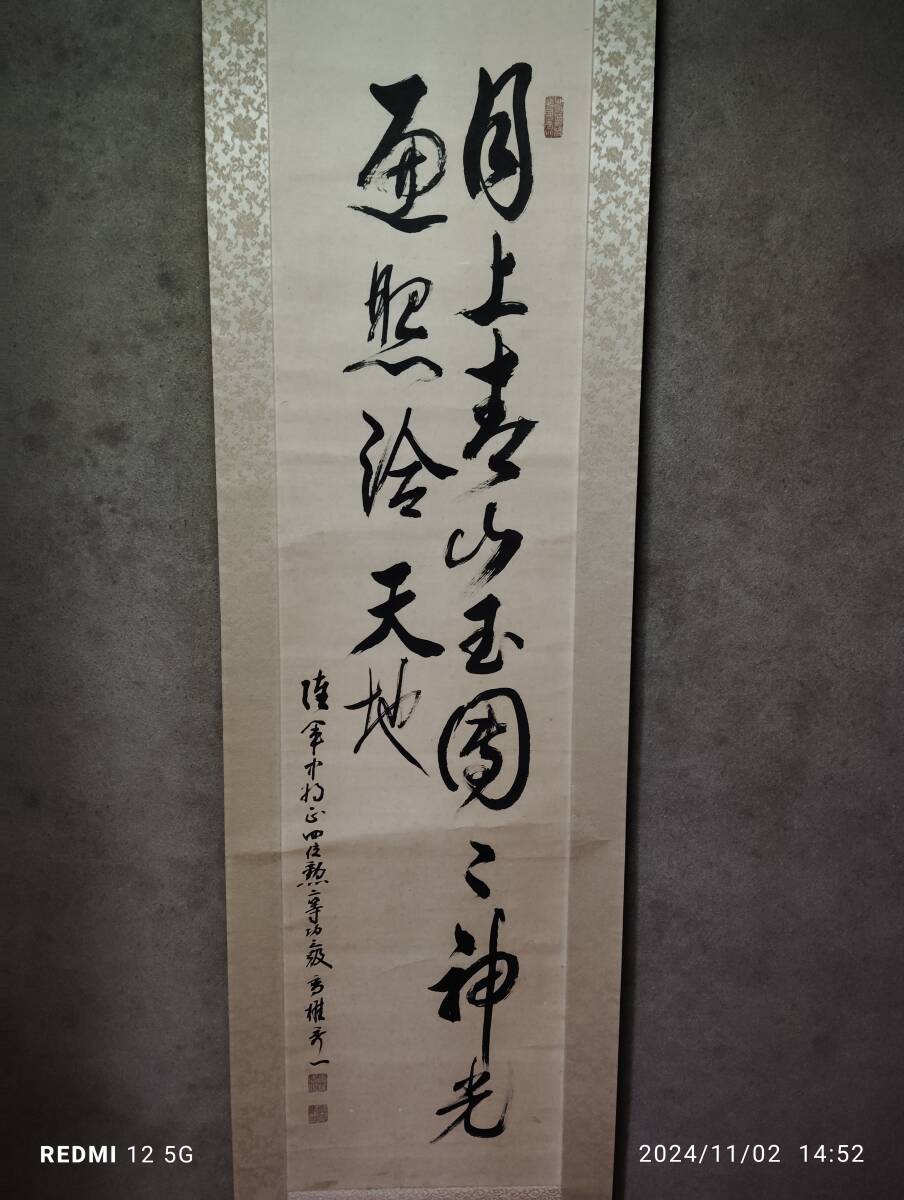 月上青山玉團〻神光
遍照洽天地
陸軍中将正四位勲二等功三級 香椎秀一
REDMI 12 5G
2024/11/02 14:52